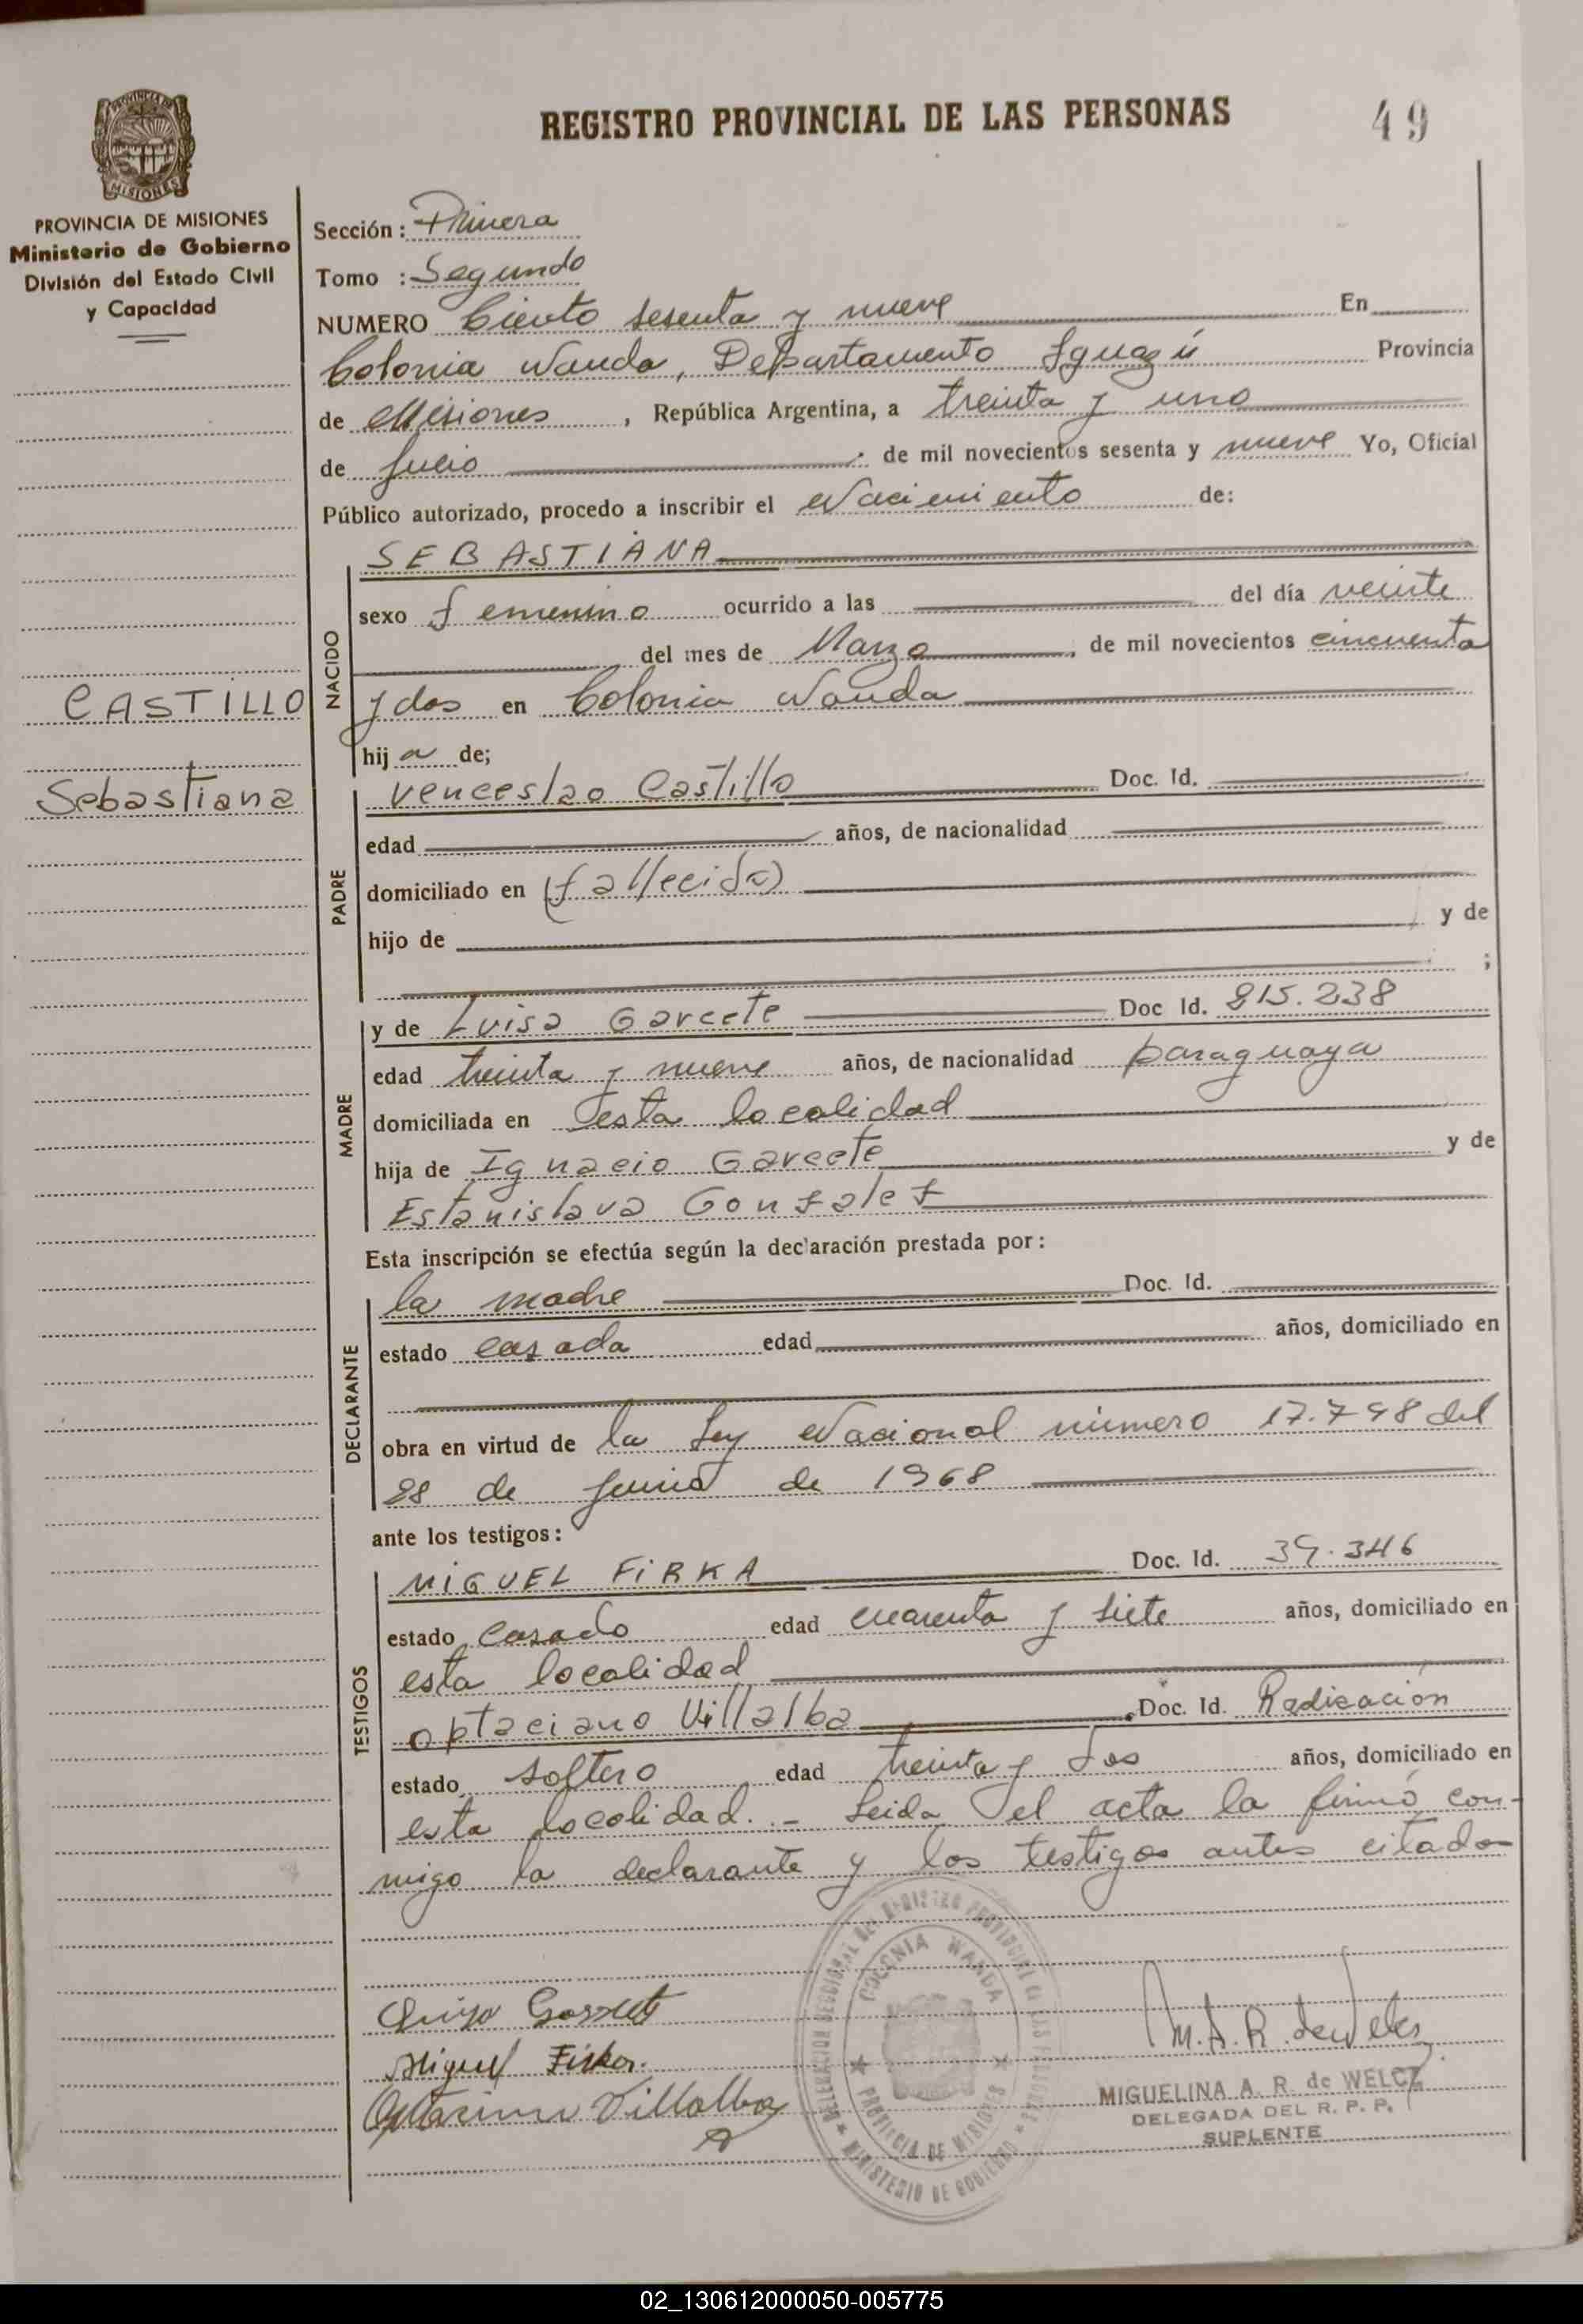 REGISTRO PROVINCIAL DE LAS PERSONAS
49
PROVINCIA DE MISIONES
MISIONES
PROVINCIA DE MISIONES
Ministerio de Gobierno
División del Estado Civil
y Capacidad
CASTILLO
Sebastiana
Sección: Primera
Tomo : Segundo
NUMERO Ciento sesenta y nueve En
Colonia Wanda, Departamento Iguazú Provincia
de Misiones , República Argentina, a treinta y uno
de Julio de mil novecientos sesenta y nueve Yo, Oficial
Público autorizado, procedo a inscribir el Nacimiento de:
NACIDO
SEBASTIANA
sexo femenino ocurrido a las del día veinte
del mes de Marzo , de mil novecientos cincuenta
y dos en Colonia Wanda
hij a de;
PADRE
Venceslao Castillo Doc. Id.
edad años, de nacionalidad
domiciliado en (fallecido)
hijo de y de
;
MADRE
y de Luisa Garcete Doc Id. 815.238
edad treinta y nueve años, de nacionalidad paraguaya
domiciliada en esta localidad
hija de Ignacio Garcete y de
Estanislava Gonzalez
Esta inscripción se efectúa según la declaración prestada por:
DECLARANTE
la madre Doc. Id.
estado casada edad años, domiciliado en
obra en virtud de la Ley Nacional número 17.798 del
28 de Junio de 1968
ante los testigos:
TESTIGOS
MIGUEL FiRKA Doc. Id. 39.346
estado Casado edad cuarenta y siete años, domiciliado en
esta localidad
optaciano Villalba Doc. Id. Radicación
estado soltero edad treinta y dos años, domiciliado en
esta localidad. - Leida el acta la firmó con-
migo la declarante y los testigos antes citados
DELEGACION SECCIONAL DEL REGISTRO PROVINCIAL DE LAS PERSONAS
COLONIA WANDA
PROVINCIA DE MISIONES
MINISTERIO DE GOBIERNO
Miguel Firka.
Villalba
M.A.R. de Welcz
MIGUELINA A. R. de WELCZ
DELEGADA DEL R. P. P.
SUPLENTE
02_130612000050-005775